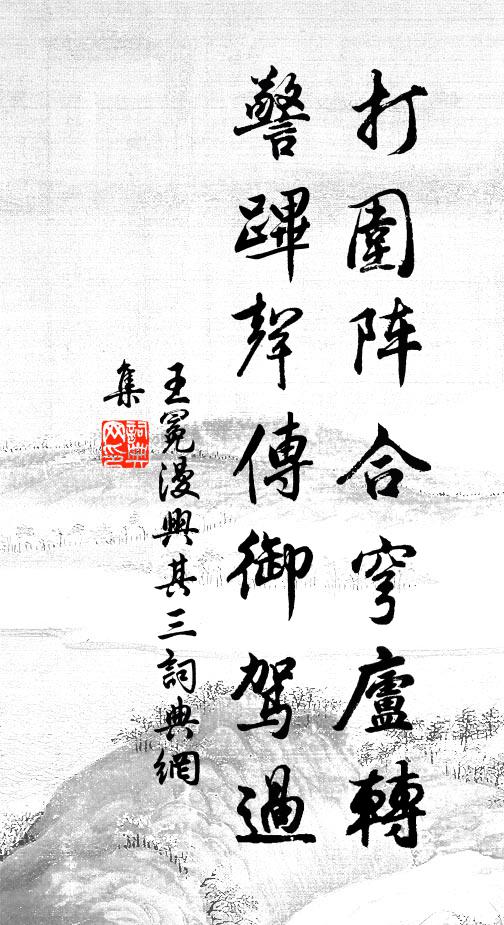 打圍阵合穹廬轉
警蹕聲傳御駕過
王冕漫興其三詞典網
集